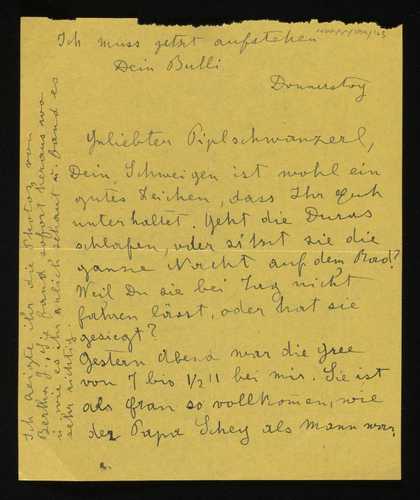 Ich muss jetzt aufstehen
Dein Bulli
Donnerstag
Geliebter Piplschwanzerl,
Dein Schweigen ist wohl ein
gutes Zeichen, dass Ihr Euch
unterhaltet. Geht die Duras
schlafen, oder sitzt sie die
ganze Nacht auf dem Rad?
Weil Du sie bei Tag nicht
fahren lässt, oder hat sie
gesiegt?
Gestern Abend war die Gree
von 7 bis 1/2 11 bei mir. Sie ist
als Frau so vollkomen, wie
der Papa Schey als Mann war.
Ich zeigte ihr die Photos von
Bertha J. Sie fand sofort heraus wo
u. wie ich ihr änlich schau u. fand es
sehr richtig